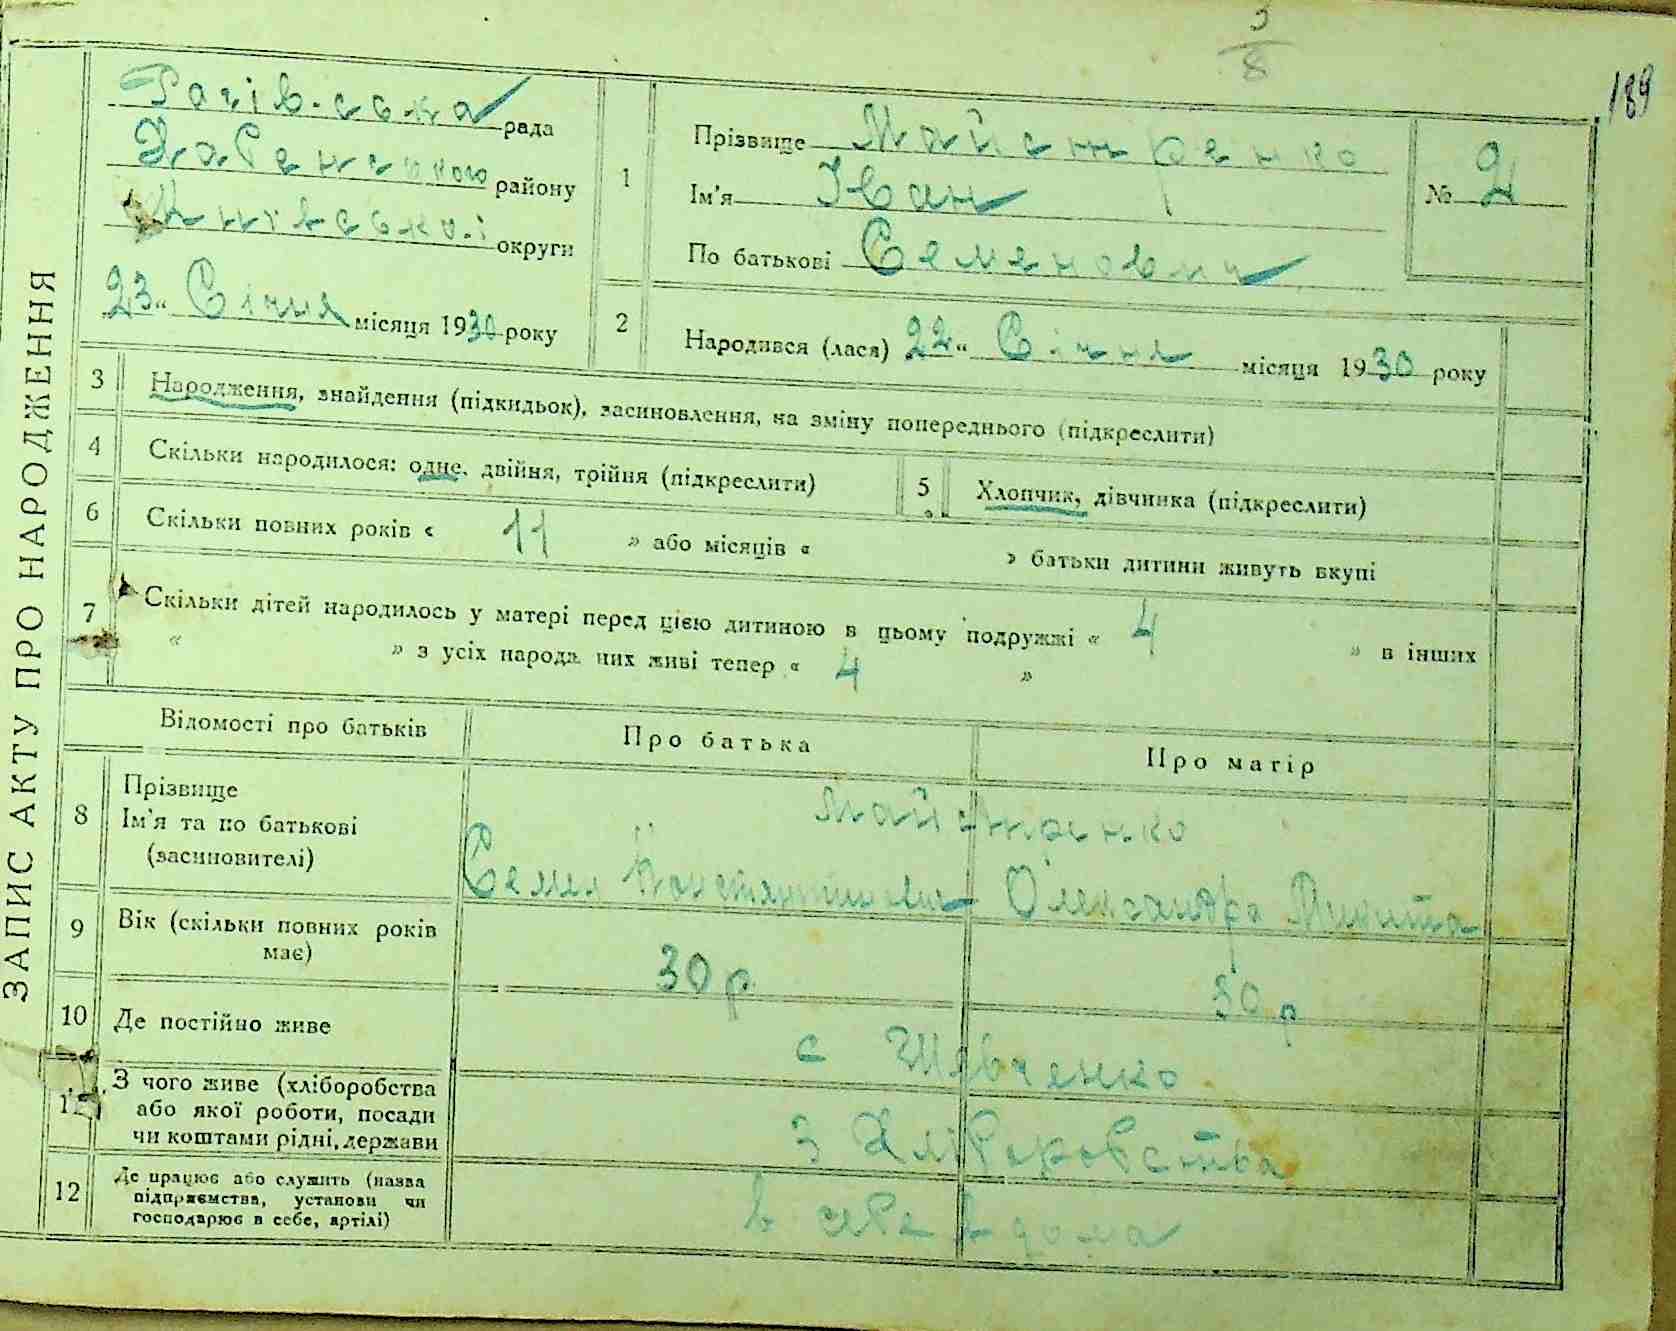 5
8
189
ЗАПИС АКТУ ПРО НАРОДЖЕННЯ
Рагівська рада
Хабенського району
Київської округи
23 „ Січня місяця 1930 року
1
Прізвище Майстренко
Ім'я Іван
По батькові Семенович
№ 2
2
Народився (лася) 22 „ Січня місяця 1930 року
3 Народження, знайдення (підкидьок), засиновлення, на зміну попереднього (підкреслити)
4 Скільки народилося: одне, двійня, трійня (підкреслити)
5 Хлопчик, дівчинка (підкреслити)
6 Скільки повних років « 11 » або місяців « » батьки дитини живуть вкупі
7 Скільки дітей народилось у матері перед цією дитиною в цьому подружжі « 4 » в інших
« » з усіх народж них живі тепер « 4 »
Відомості про батьків Про батька Про матір
8 Прізвище
Ім'я та по батькові
(засиновителі)
Майстренко
Семен Константинович Олександра Микита
9 Вік (скільки повних років
має)
30 р. 30 р
10 Де постійно живе с Шевченко
11 З чого живе (хліборобства
або якої роботи, посади
чи коштами рідні, держави
з Хліборобства
12 Де працює або служить (назва
підприємства, установи чи
господарює в себе, артілі)
в себе в дома